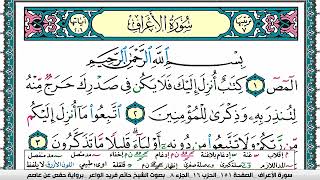 سُورَةُ الأَعْرَافِ
بِسْمِ اللَّهِ الرَّحْمَٰنِ الرَّحِيمِ
الٓمٓصٓ ١ كِتَٰبٌ أُنزِلَ إِلَيْكَ فَلَا يَكُن فِى صَدْرِكَ حَرَجٌ مِّنْهُ
لِتُنذِرَ بِهِۦ وَذِكْرَىٰ لِلْمُؤْمِنِينَ ٢ ٱتَّبِعُوا۟ مَآ أُنزِلَ إِلَيْكُم
مِّن رَّبِّكُمْ وَلَا تَتَّبِعُوا۟ مِن دُونِهِۦٓ أَوْلِيَآءَ قَلِيلًا مَّا تَذَكَّرُونَ ٣
سورة الأعراف - الصفحة ١٥١ - الحزب ١٦ - الجزء ٨ - بصوت الشيخ حاتم فريد الواعر - رواية حفص عن عاصم